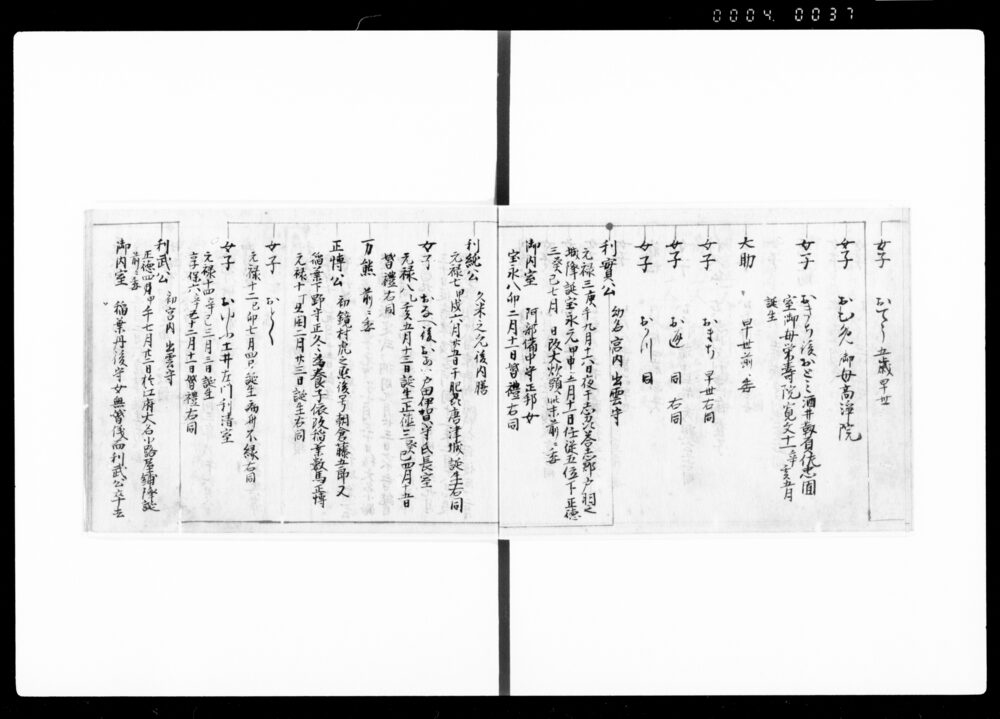 0004 0037
女子 五歳早世
女子 御母高漳院
女子 酒井靱負佐忠囿
室御母常壽院寛文十一辛亥五月
誕生
大助 早世前ニ委
女子 おまち 早世右同
女子 同 右同
女子 同
利實公 幼名宮内 出雲守
元禄三庚午九月十六日夜于志州答志郡戸羽之
城降誕宝永元甲申三月十一日任従五位下正徳
三癸巳七月 日改大炒頭 前ニ委
御内室 阿部備中守正邦女
宝永八卯二月十一日督禮右同
利純公 久米之允後内膳
元禄七甲戌六月廿五日于肥州唐津城誕生右同
女子 後 戸田伊賀守氏長室
元禄八乙亥五月十三日誕生正徳三癸巳四月十五日
督禮右同
万熊 前ニ委
正博公 初鏡村虎之烝後号朝倉藤五郎又
稲葉下野守正久為養子依改稲葉数馬正博
元禄十丁丑閏二月廿三日誕生右同
女子
元禄十二己卯七月四日誕生病身不縁右同
女子 土井左門利清室
元禄十四辛巳三月三日誕生
享保六辛丑十二月十一日督禮右同
利武公 初宮内 出雲守
正徳四甲午七月廿二日於江府大名小路屋鋪降誕
前ニ委
御内室 稲葉丹後守女無督儀而利武公卒去